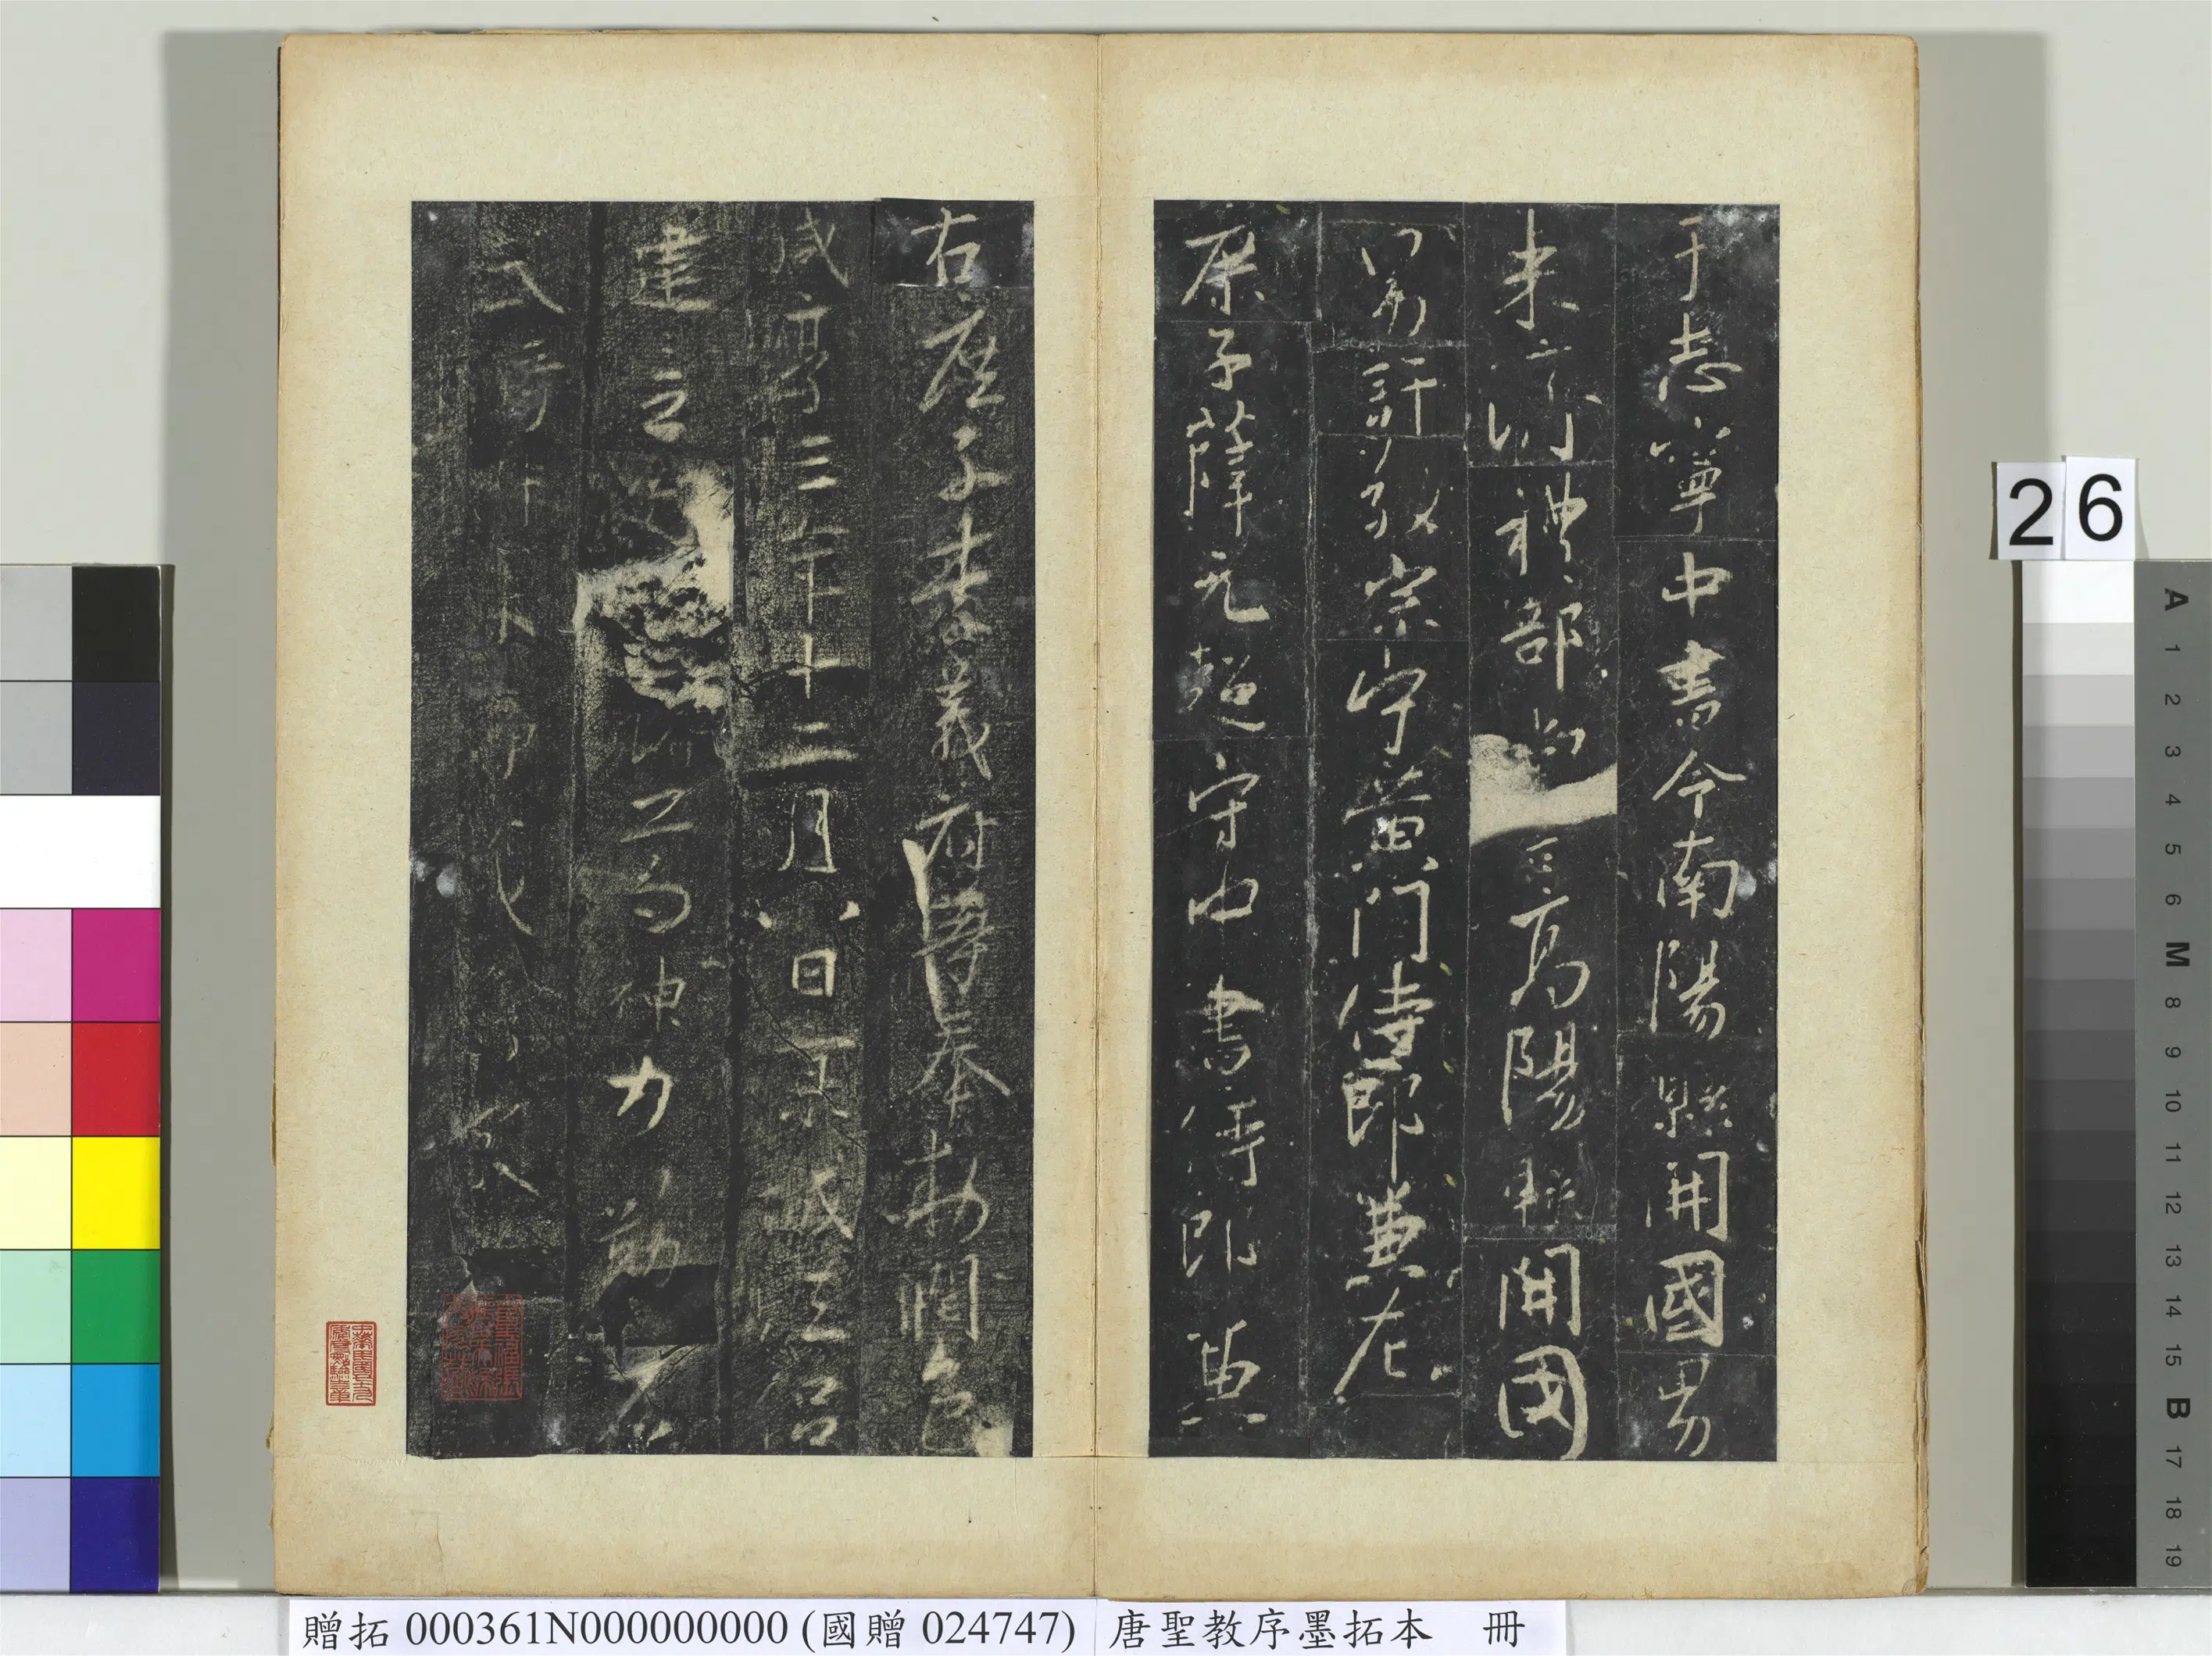 于志寧中書令南陽縣開國男
来濟禮部尚
高陽縣開國
男許敬宗守黃門侍郎兼左
庶子薛元超守中書侍郎兼
右庶子李義府等奉敕潤色
咸亨三年十二月八日京城法侶
建立
諸葛神力勒石
武騎尉朱
26
A 1 2 3 4 5 6 M 8 9 10 11 12 13 14 15 B 17 18 19
贈拓 000361N000000000 (國贈 024747) 唐聖教序墨拓本 冊